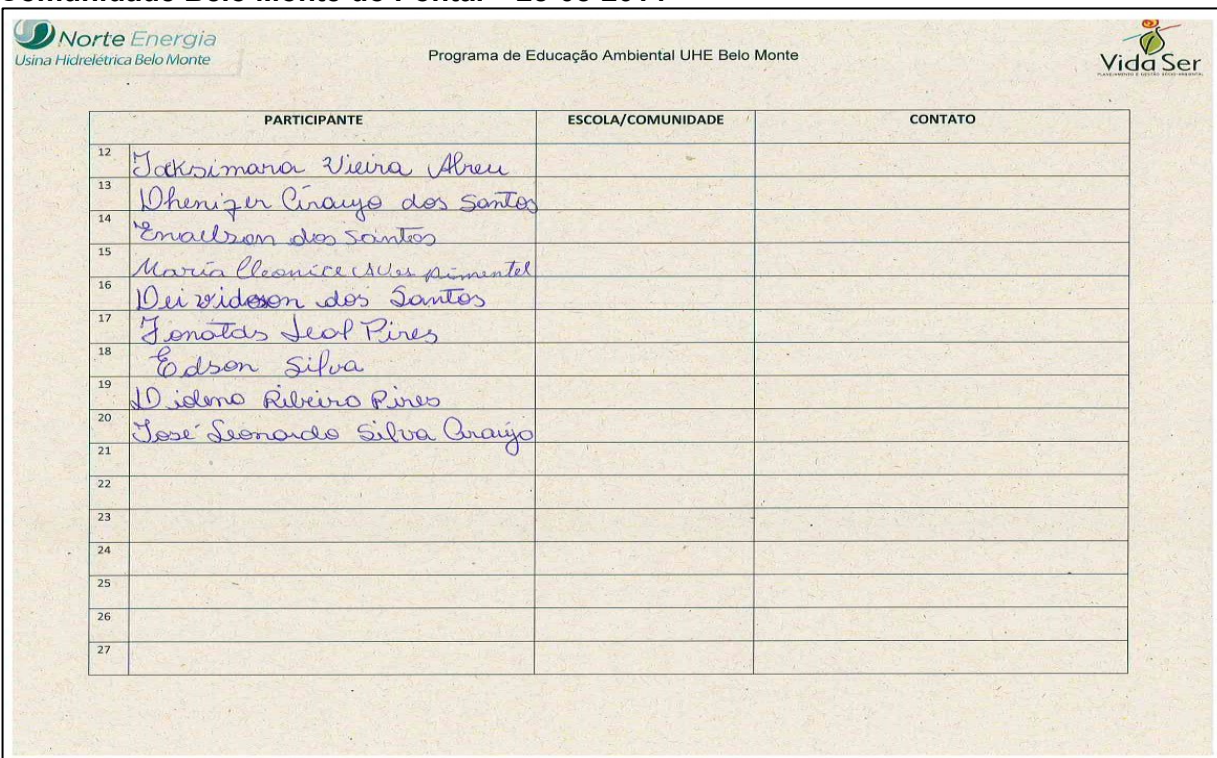 Norte Energia
Usina Hidrelétrica Belo Monte
Programa de Educação Ambiental UHE Belo Monte
Vida Ser
PARTICIPANTE ESCOLA/COMUNIDADE CONTATO
12 Jaksimara Vieira Abreu
13 Dhenizer Araujo dos Santos
14 dos Santos
15 Maria Cleonice Alves pimentel
16 Deividson dos Santos
17 Leal Pires
18 Edson Silva
19 Ribeiro Pires
20 José Leonardo Silva Araújo
21
22
23
24
25
26
27